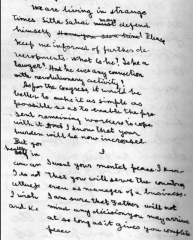 We are living in strange
times. Sitla Sahai must defend
himself. Please
keep me informed of further de-
velopments. What is he? Is he a
lawyer? Has he ever any connection
with revolutionary activity?
As for the Congress it would be
better to make it as simple as
possible so as to enable the pre-
sent remaining workers to cope
with it. And I know that your
burden will now be increased.
But
health in
can I want your mental peace. I know
I do not That you will serve the country
even as manager of a business.
I wish I am sure that Father will not
and mine any decision you may arrive
at so long as it gives you complete
peace